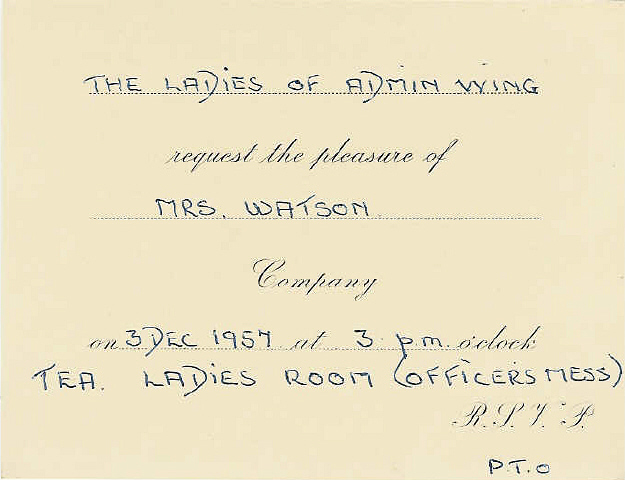 THE LADIES OF ADMIN WING
request the pleasure of
MRS. WATSON.
Company
on 3 DEC 1957 at 3 p.m. o'clock
TEA. LADIES ROOM (OFFICERS MESS)
R.S.V.P.
P.T.O